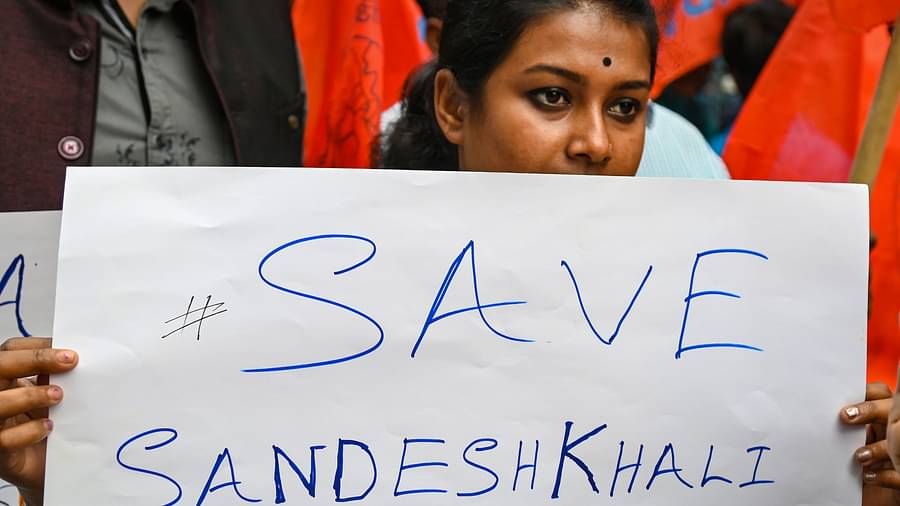 #SAVE
SANDESHKHALI